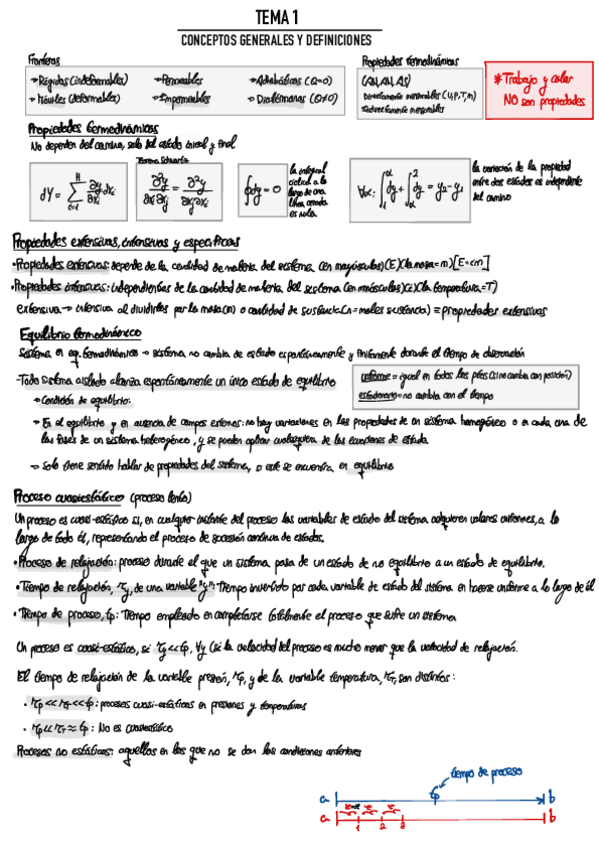 TEMA 1
CONCEPTOS GENERALES Y DEFINICIONES
Fronteras
→ Rígidas (indeformables) → Permeables → Adiabáticas (Q=0)
→ Móviles (deformables) → Impermeables → Diatérmanas (Q≠0)
Propiedades termodinámicas
(ΔU, ΔH, ΔS)
Directamente mensurables (V, P, T, m)
Indirectamente mensurables
* Trabajo y calor
NO son propiedades
Propiedades termodinámicas
No dependen del camino, solo del estado inicial y final
Teorema Schwartz
dY = Σ ∂y/∂xi dxi
∂²y/∂xi∂xj = ∂²y/∂xj∂xi
∮dy = 0
la integral
cíclica a lo
largo de una
línea cerrada
es nula.
∀α: ∫dy + ∫dy = y₂ - y₁
la variación de la propiedad
entre dos estados es independiente
del camino
Propiedades extensivas, intensivas y específicas
• Propiedades extensivas: depende de la cantidad de materia del sistema (en mayúsculas) (E) (la masa = m) [E = em]
• Propiedades intensivas: independientes de la cantidad de materia del sistema (en minúsculas) (i) (la temperatura = T)
extensiva → intensiva al dividirlas por la masa (m) o cantidad de sustancia (n = moles sustancia) = propiedades extensivas
Equilibrio termodinámico
Sistema en eq. termodinámico → sistema no cambia de estado espontáneamente y finitamente durante el tiempo de observación
- Todo sistema aislado alcanza espontáneamente un único estado de equilibrio
uniforme = igual en todos los ptos (si no cambia con posición)
estacionario = no cambia con el tiempo
→ Condición de equilibrio:
→ En el equilibrio y en ausencia de campos externos: no hay variaciones en las propiedades de un sistema homogéneo o en cada una de
las fases de un sistema heterogéneo, y se pueden aplicar cualquiera de las ecuaciones de estado.
→ Solo tiene sentido hablar de propiedades del sistema, si este se encuentra en equilibrio
Proceso cuasiestático (proceso lento)
Un proceso es cuasi-estático si, en cualquier instante del proceso las variables de estado del sistema adquieren valores uniformes, a lo
largo de todo él, representando el proceso de sucesión continua de estados.
• Proceso de relajación: proceso durante el que un sistema pasa de un estado de no equilibrio a un estado de equilibrio.
• Tiempo de relajación, τy, de una variable "y": Tiempo invertido por cada variable de estado del sistema en hacerse uniforme a lo largo de él
• Tiempo de proceso, tp: Tiempo empleado en completarse totalmente el proceso que sufre un sistema
Un proceso es cuasi-estático, si τy << tp, ∀y (si la velocidad del proceso es mucho menor que la velocidad de relajación.
El tiempo de relajación de la variable presión, τp, y de la variable temperatura, τT, son distintos:
• τp << τT << tp: procesos cuasi-estáticos en presiones y temperaturas
• τp << τT ≈ tp: No es cuasiestático
Procesos no estáticos: aquellos en los que no se dan las condiciones anteriores
tiempo de proceso
a tp b
a 1 2 3 b